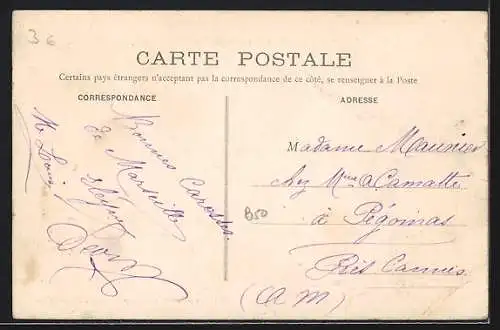 36
CARTE POSTALE
Certains pays étrangers n'acceptant pas la correspondance de ce côté, se renseigner à la Poste
CORRESPONDANCE
ADRESSE
Bonnes Caresses
de Marseille
Madame Maunier
chez Mme A Camatte
à Pégomas
Près Cannes
(A M)
B50